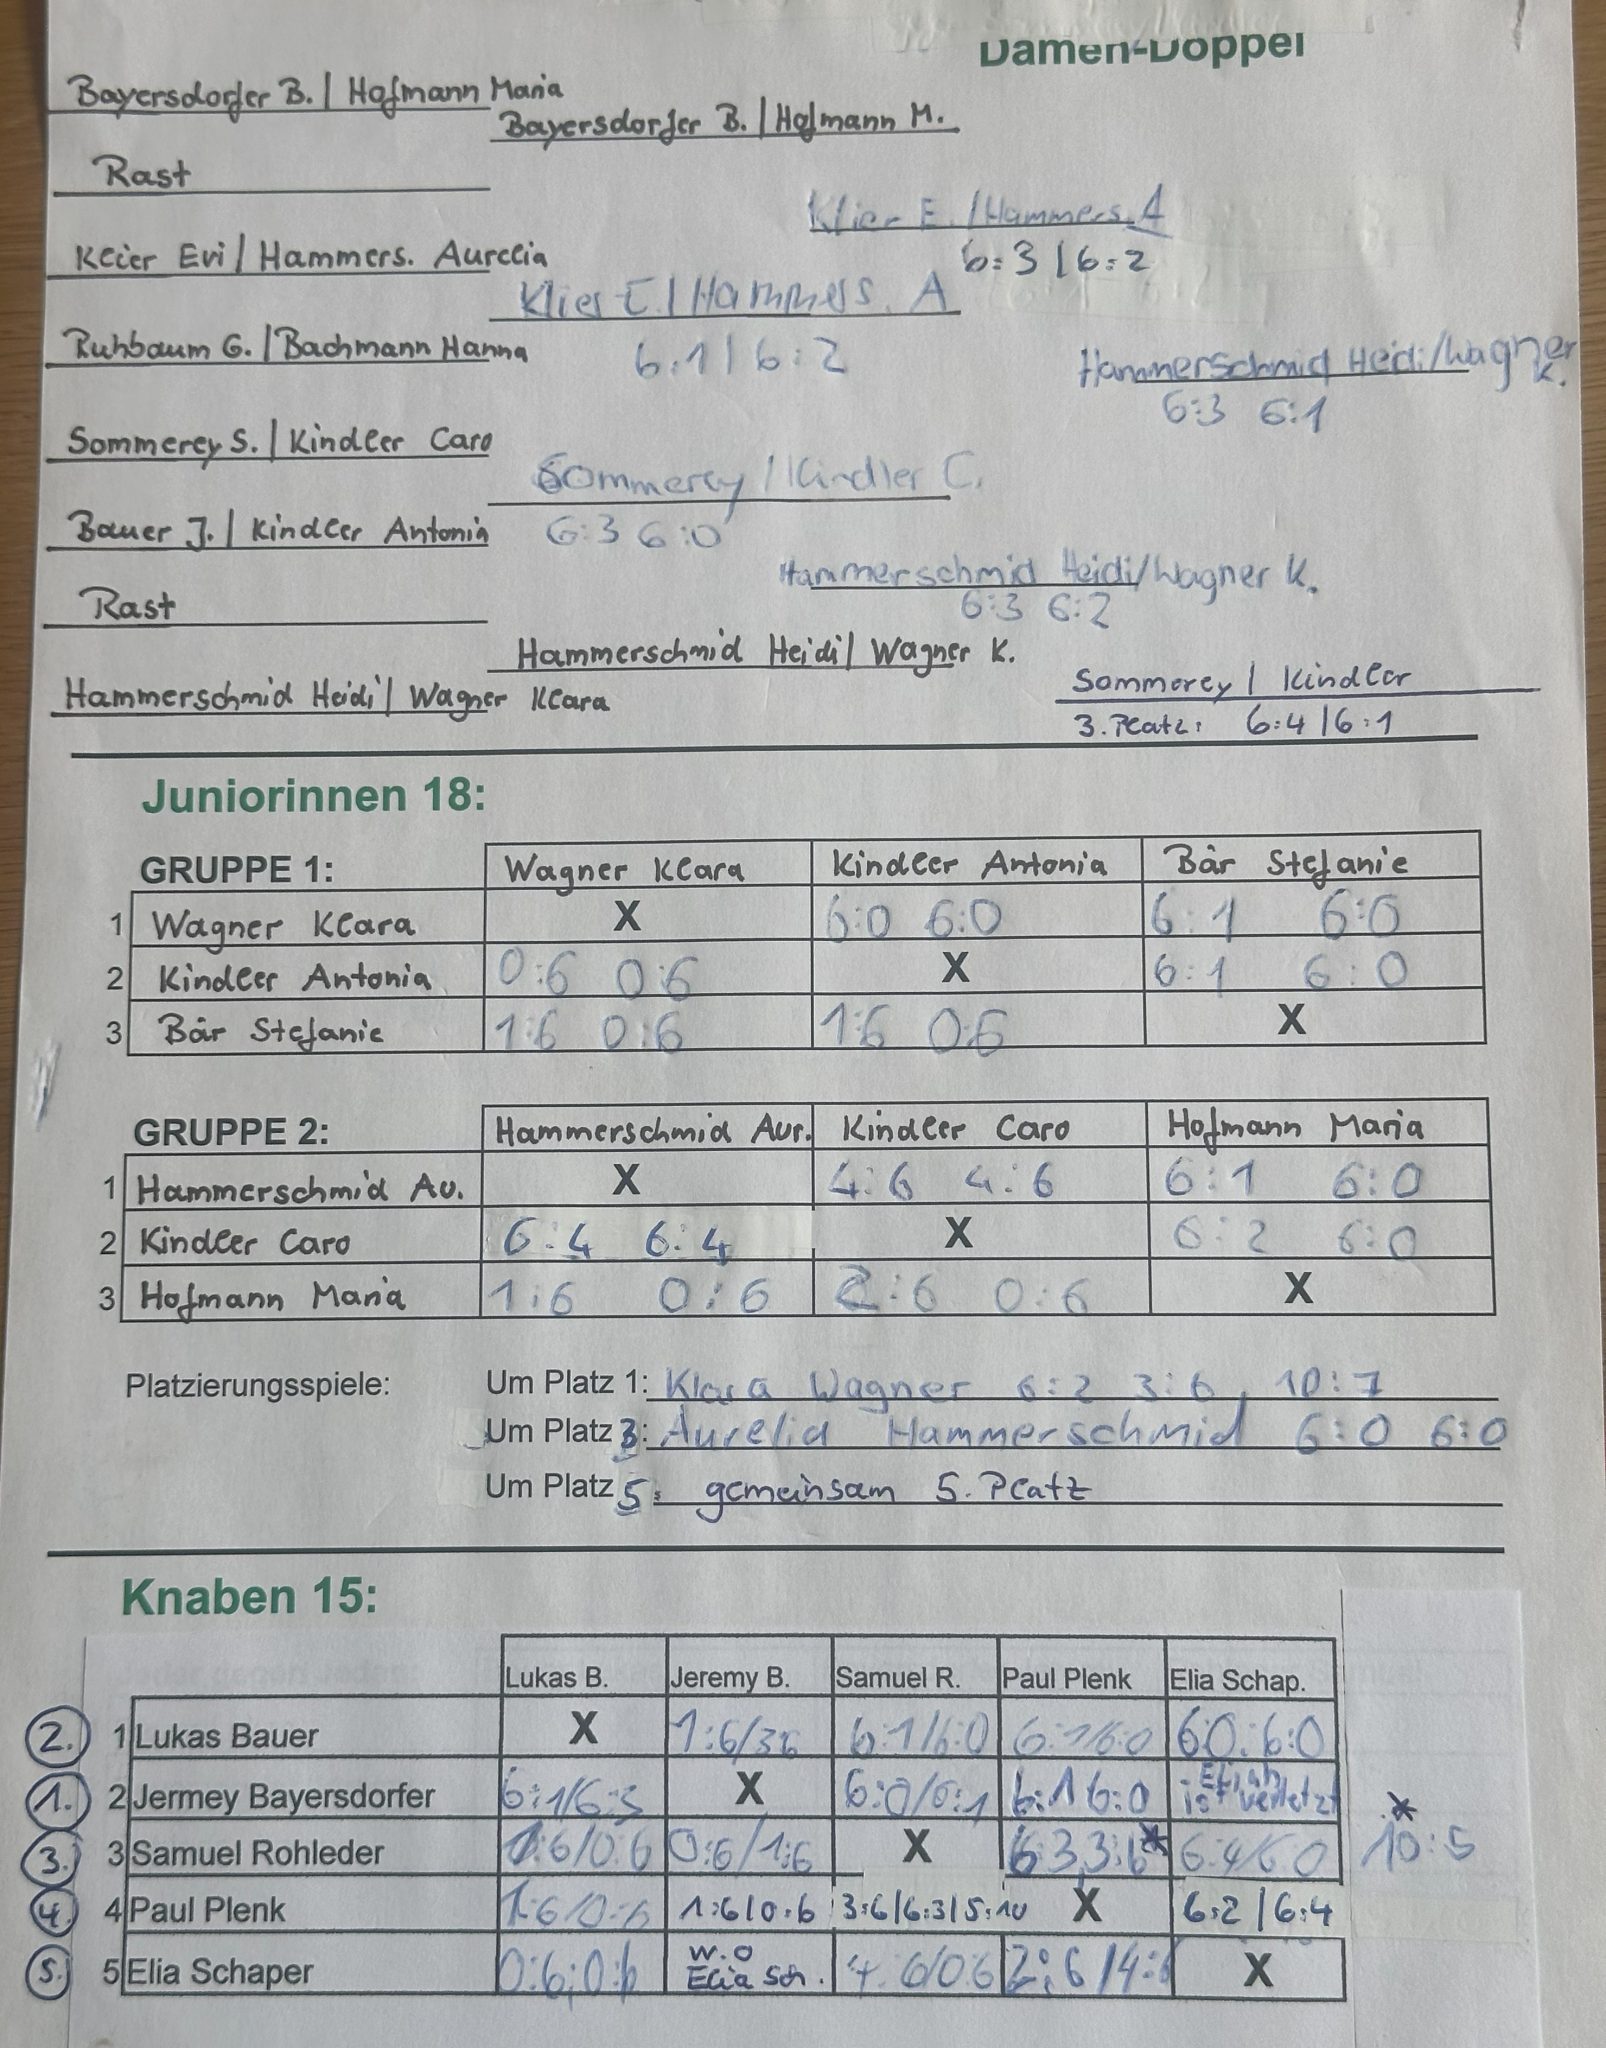 Damen-Doppel
Bayersdorfer B. | Hofmann Maria
Bayersdorfer B. | Hofmann M.
Rast
Klier E. / Hammers. A
6:3 | 6:2
Klier Evi | Hammers. Aurelia
Klier E. | Hammers. A
6:1 | 6:2
Ruhbaum G. | Bachmann Hanna
Hammerschmid Heidi/Wagner K.
6:3 6:1
Sommerey S. | Kindler Caro
Sommerey / Kindler C.
6:3 6:0
Bauer J. | Kindler Antonia
Hammerschmid Heidi/Wagner K.
6:3 6:2
Rast
Hammerschmid Heidi | Wagner K.
Hammerschmid Heidi | Wagner Klara
Sommerey | Kindler
3. Platz: 6:4 | 6:1
Juniorinnen 18:
GRUPPE 1: Wagner Klara Kindler Antonia Bär Stefanie
1 Wagner Klara X 6:0 6:0 6:1 6:0
2 Kindler Antonia 0:6 0:6 X 6:1 6:0
3 Bär Stefanie 1:6 0:6 1:6 0:6 X
GRUPPE 2: Hammerschmid Aur. Kindler Caro Hofmann Maria
1 Hammerschmid Au. X 4:6 4:6 6:1 6:0
2 Kindler Caro 6:4 6:4 X 6:2 6:0
3 Hofmann Maria 1:6 0:6 2:6 0:6 X
Platzierungsspiele: Um Platz 1: Klara Wagner 6:2 3:6, 10:7
Um Platz 3: Aurelia Hammerschmid 6:0 6:0
Um Platz 5: gemeinsam 5. Platz
Knaben 15:
Lukas B. Jeremy B. Samuel R. Paul Plenk Elia Schap.
2. 1 Lukas Bauer X 1:6/3:6 6:1/6:0 6:1/6:0 6:0:6:0
1. 2 Jermey Bayersdorfer 6:1/6:3 X 6:0/6:1 6:1 6:0 Eliah ist verletzt
3. 3 Samuel Rohleder 1:6/0:6 0:6/1:6 X 6:3 3:6* 6:4/6:0 * 10:5
4. 4 Paul Plenk 1:6/0:6 1:6/0:6 3:6/6:3/5:10 X 6:2 | 6:4
5. 5 Elia Schaper 0:6;0:6 w.o Elia Sch. 4:6/0:6 2:6/4:6 X